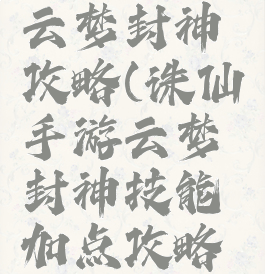 云梦封神
攻略(诛仙
手游云梦
封神技能
加点攻略